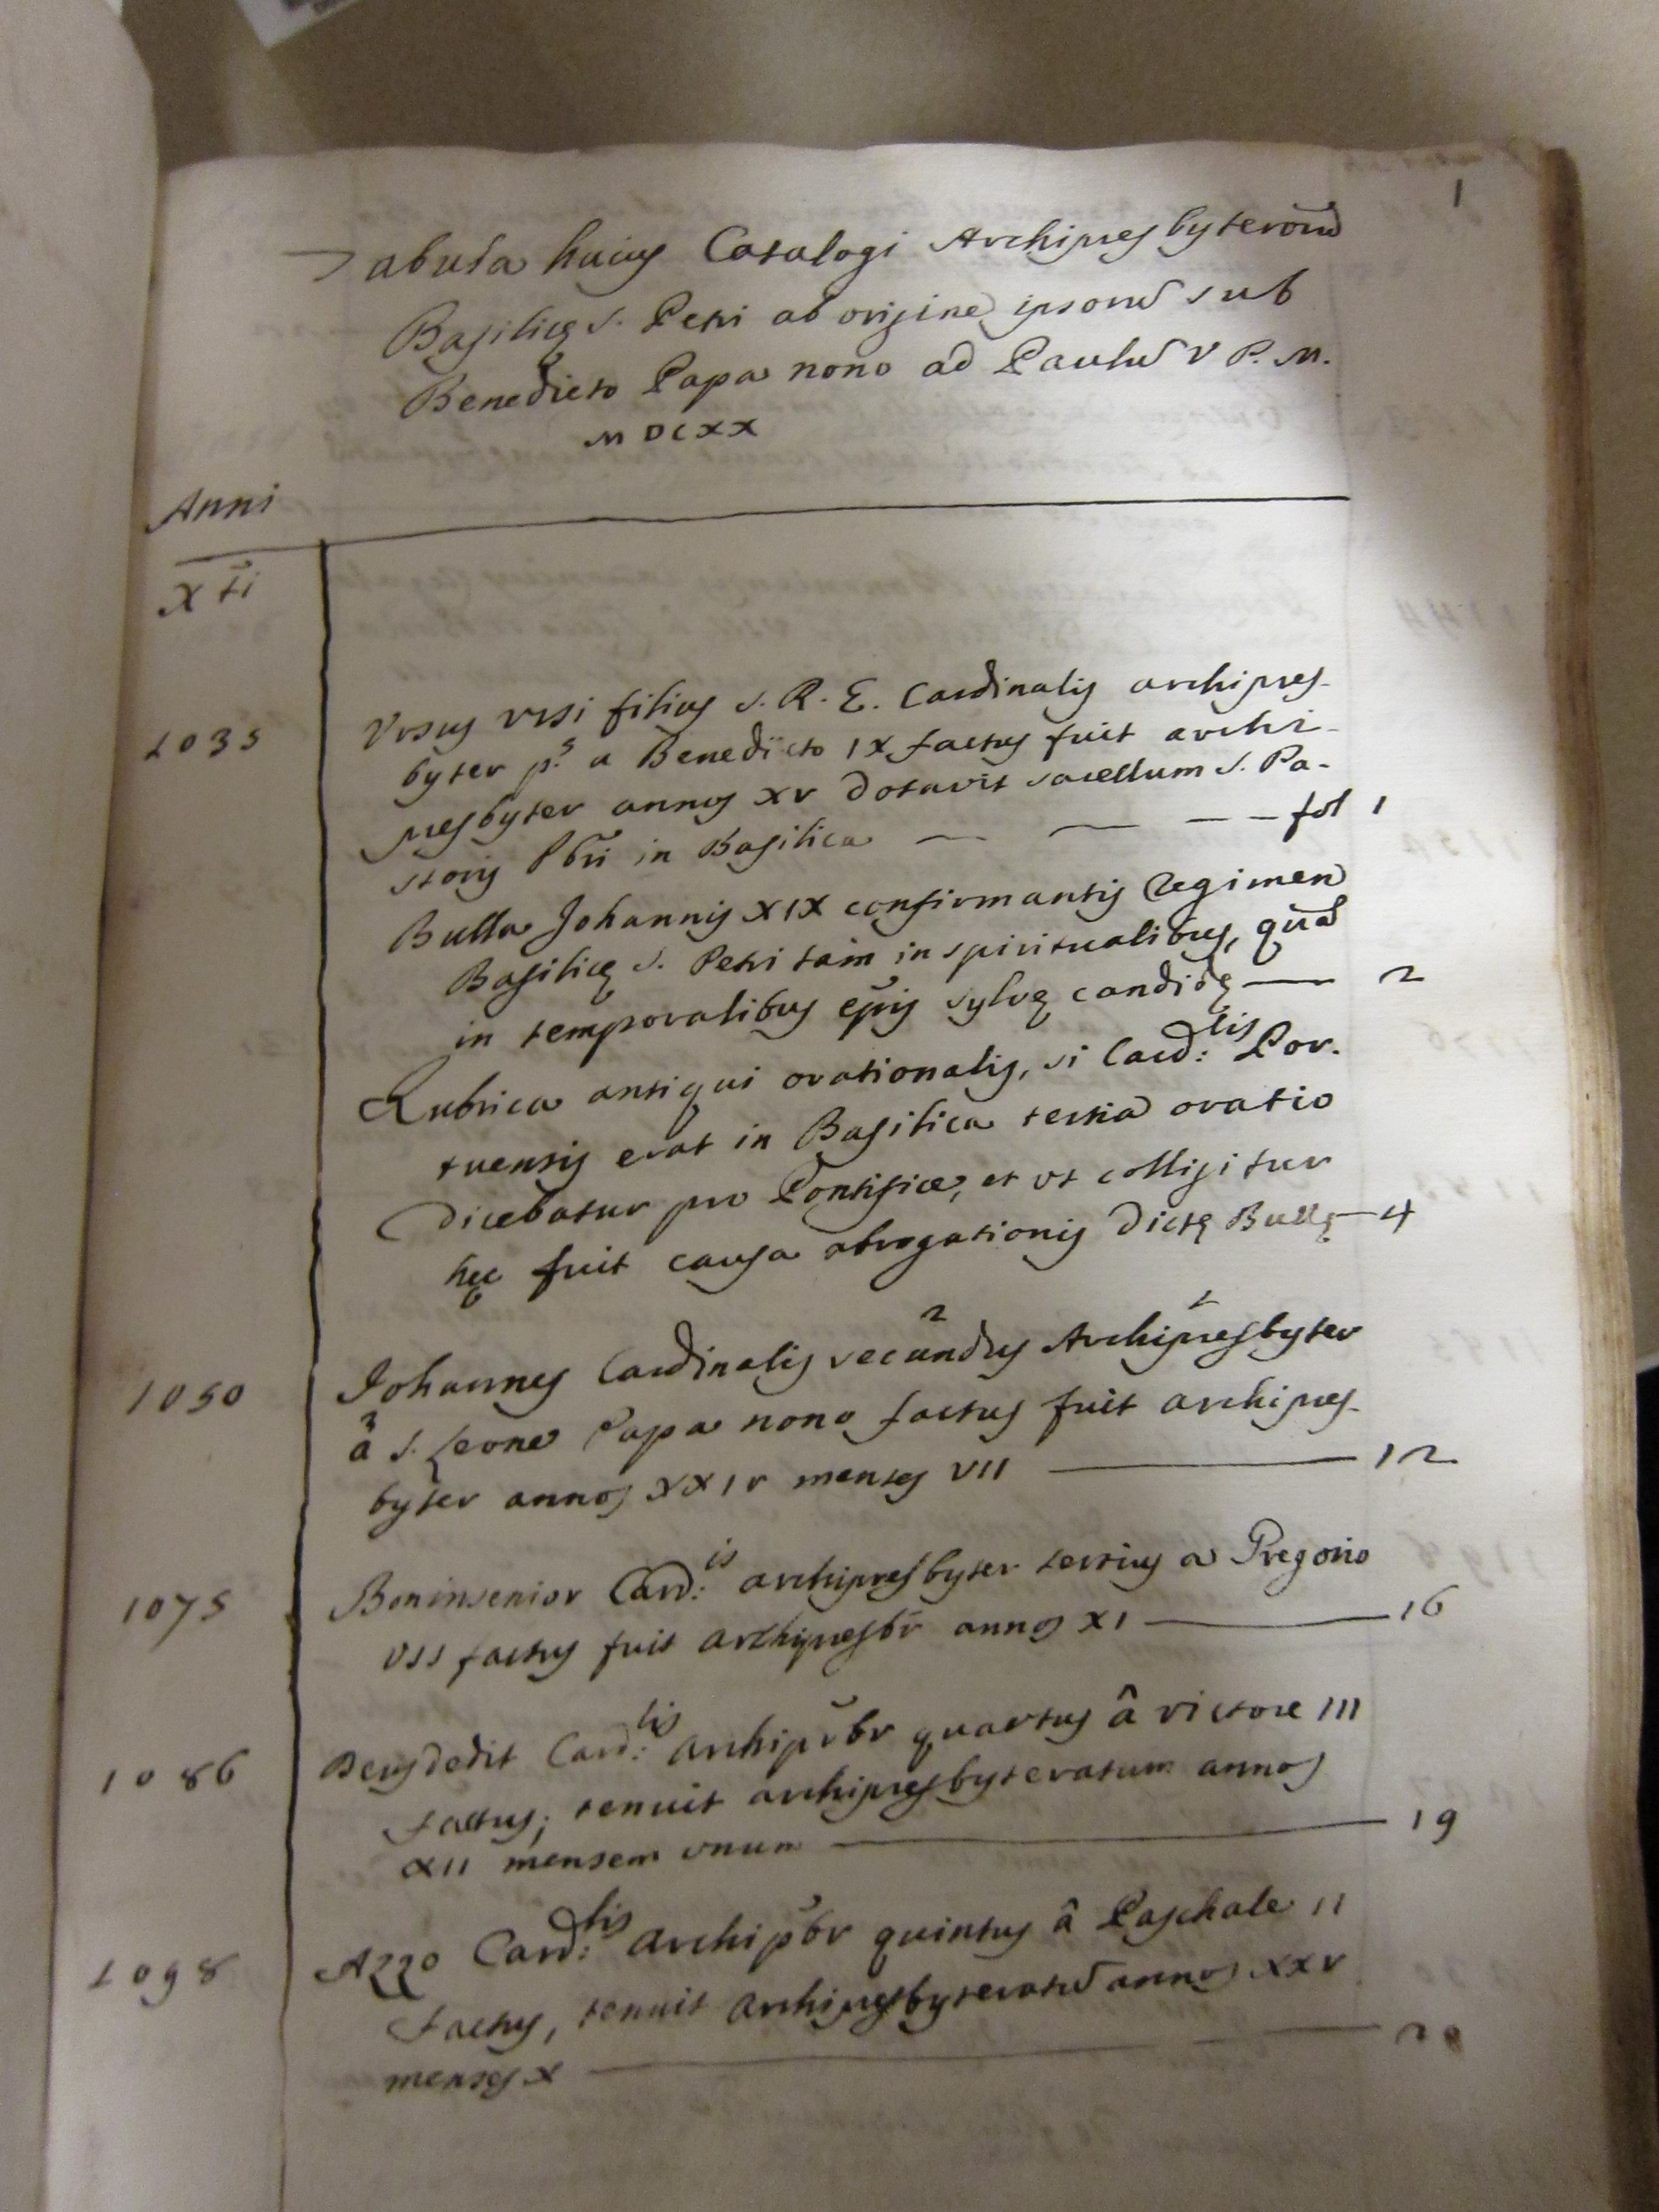 1
Tabula huius Catalogi Archipresbyterorũ
Basilicę S. Petri ab origine ipsorũ sub
Benedicto Papa nono ad Paulũ V P. M.
MDCXX
Anni
Xti
1035 Vrsus Vrsi filius S. R. E. Cardinalis archipres-
byter p.s a Benedicto IX factus fuit archi-
presbyter annos XV dotavit sacellum S. Pa-
storis Pbri in Basilica — — — fol 1
Bulla Johannis XIX confirmantis Regimen
Basilicę S. Petri tam in spiritualibus, quã
in temporalibus epis sylvę candidę — 2
Rubrica antiqui orationalis, si Card:lis Por-
tuensis erat in Basilica tertia oratio
dicebatur pro Pontifice, et vt colligitur
hęc fuit causa abrogationis dictę Bullę — 4
1050 Johannes Cardinalis secundus Archipresbyter
à S. Leone Papa nono factus fuit archipres-
byter annos XXIV menses VII — 12
1075 Boninsenior Card:is archipresbyter tertius a Gregorio
VII factus fuit archipresbr annos XI — 16
1086 Deusdedit Card:lis Archipr̃br quartus â Victore III
factus, tenuit archipresbyteratum annos
XII mensem vnum — 19
1098 Azzo Card:lis Archip̃br quintus â Paschale II
factus, tenuit archipresbyteratũ annos XXV
menses X — 20